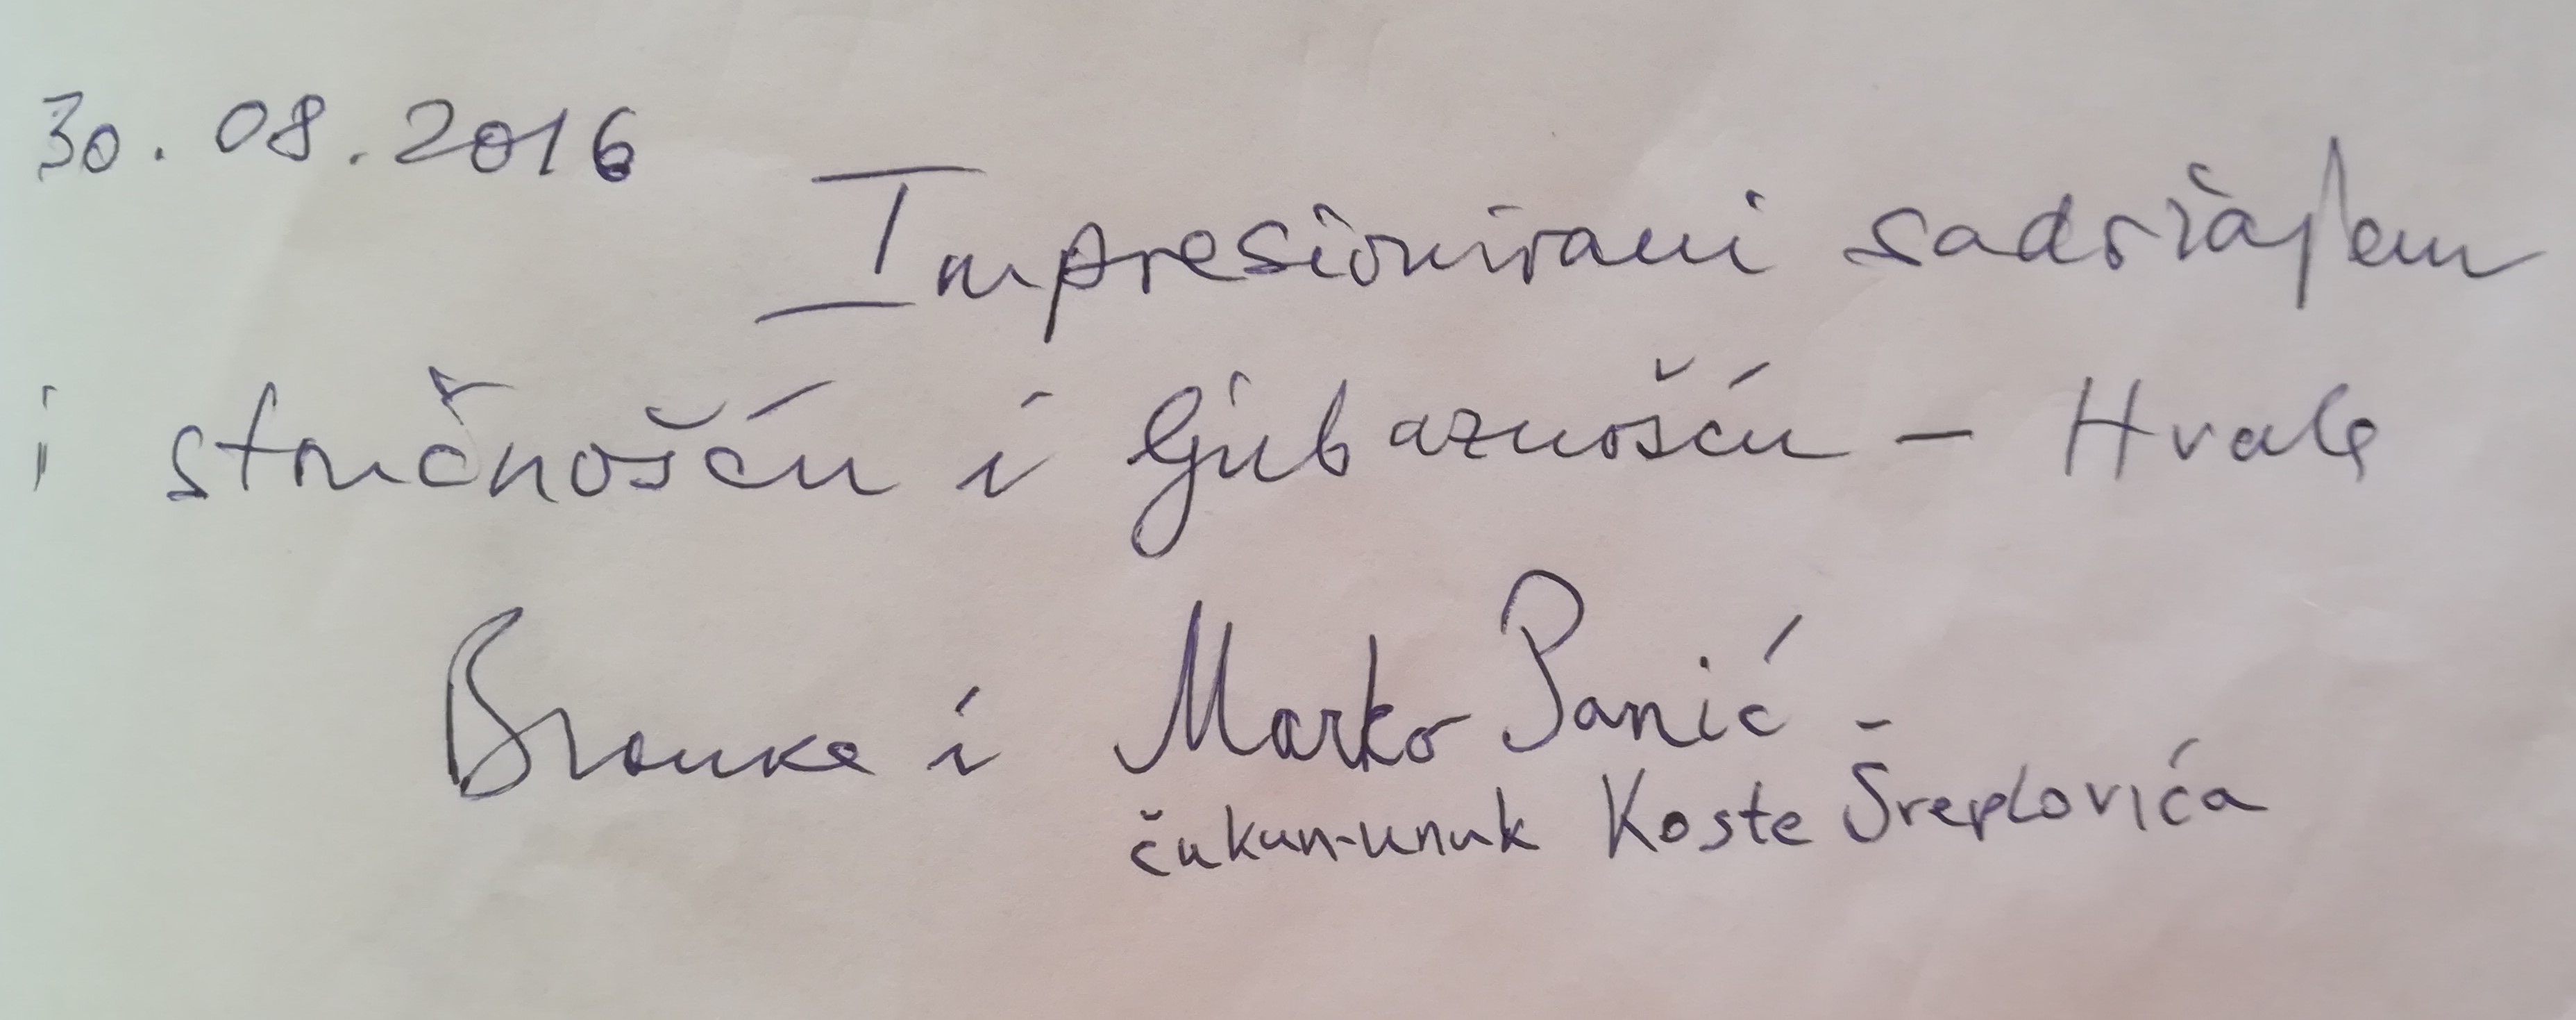 30.08.2016
Impresionirani sadržajem
i stručnošću i ljubaznošću – Hvala
Branka i Marko Panić -
čukun-unuk Koste Šreplovića